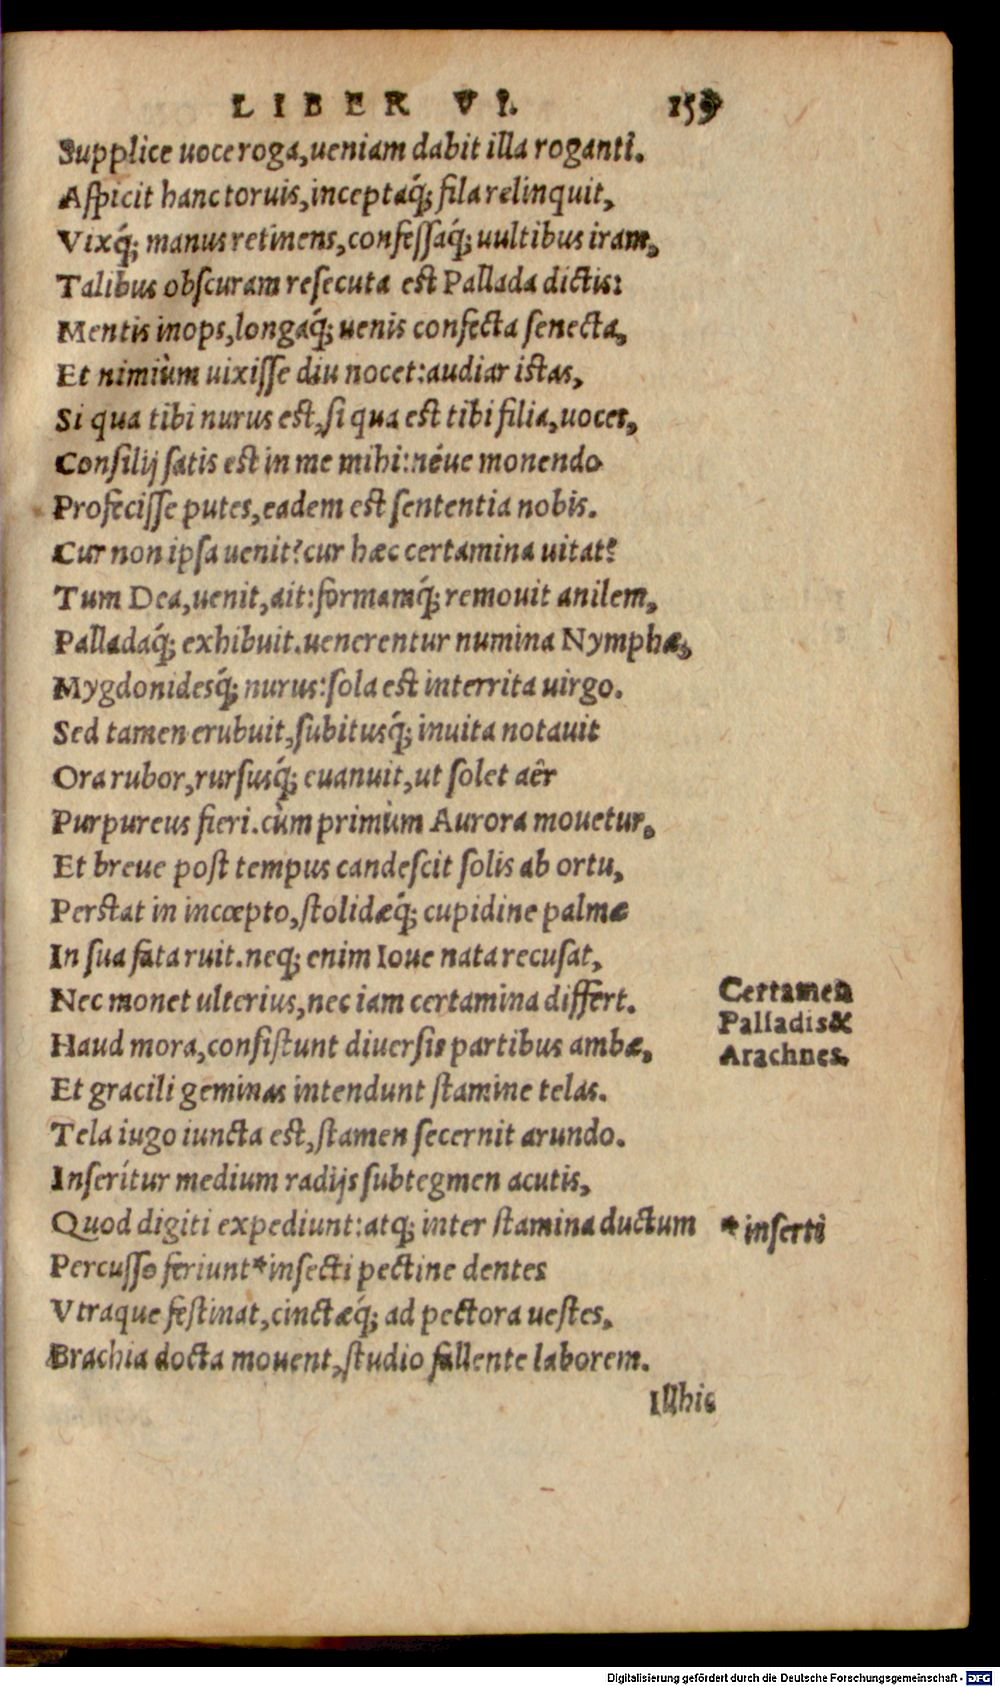 LIBER VI. 159
Supplice uoce roga, ueniam dabit illa roganti.
Aſpicit hanc toruis, inceptaq́; fila relinquit,
Vixq́; manus retinens, confeſſaq́; uultibus iram,
Talibus obſcuram reſecuta est Pallada dictis:
Mentis inops, longaq́; uenis confecta ſenecta,
Et nimiùm uixiſſe diu nocet: audiar istas,
Si qua tibi nurus est, ſi qua est tibi filia, uoces,
Conſilij ſatis est in me mihi: néue monendo
Profeciſſe putes, eadem est ſententia nobis.
Cur non ipſa uenit? cur hæc certamina uitat?
Tum Dea, uenit, ait: formamq́; remouit anilem,
Palladaq́; exhibuit. uenerentur numina Nymphæ,
Mygdonidesq́; nurus: ſola est interrita uirgo.
Sed tamen erubuit, ſubitusq́; inuita notauit
Ora rubor, rurſusq́; euanuit, ut ſolet aêr
Purpureus fieri. cùm primùm Aurora mouetur.
Et breue post tempus candeſcit ſolis ab ortu,
Perstat in incœpto, ſtolidæq́; cupidine palmæ
In ſua fata ruit. neq; enim Ioue nata recuſat,
Nec monet ulterius, nec iam certamina differt.
Haud mora, conſiſtunt diuerſis partibus ambæ,
Et gracili geminas intendunt ſtamine telas.
Tela iugo iuncta est, ſtamen ſecernit arundo.
Inſerítur medium radijs ſubtegmen acutis,
Quod digiti expediunt: atq; inter ſtamina ductum
Percuſſo feriunt *inſecti pectine dentes
Vtraque feſtinat, cinctæq́; ad pectora ueſtes,
Brachia docta mouent, ſtudio fallente laborem.
Illhis
Certamen
Palladis &
Arachnes.
* inſerti
Digitalisierung gefördert durch die Deutsche Forschungsgemeinschaft - DFG